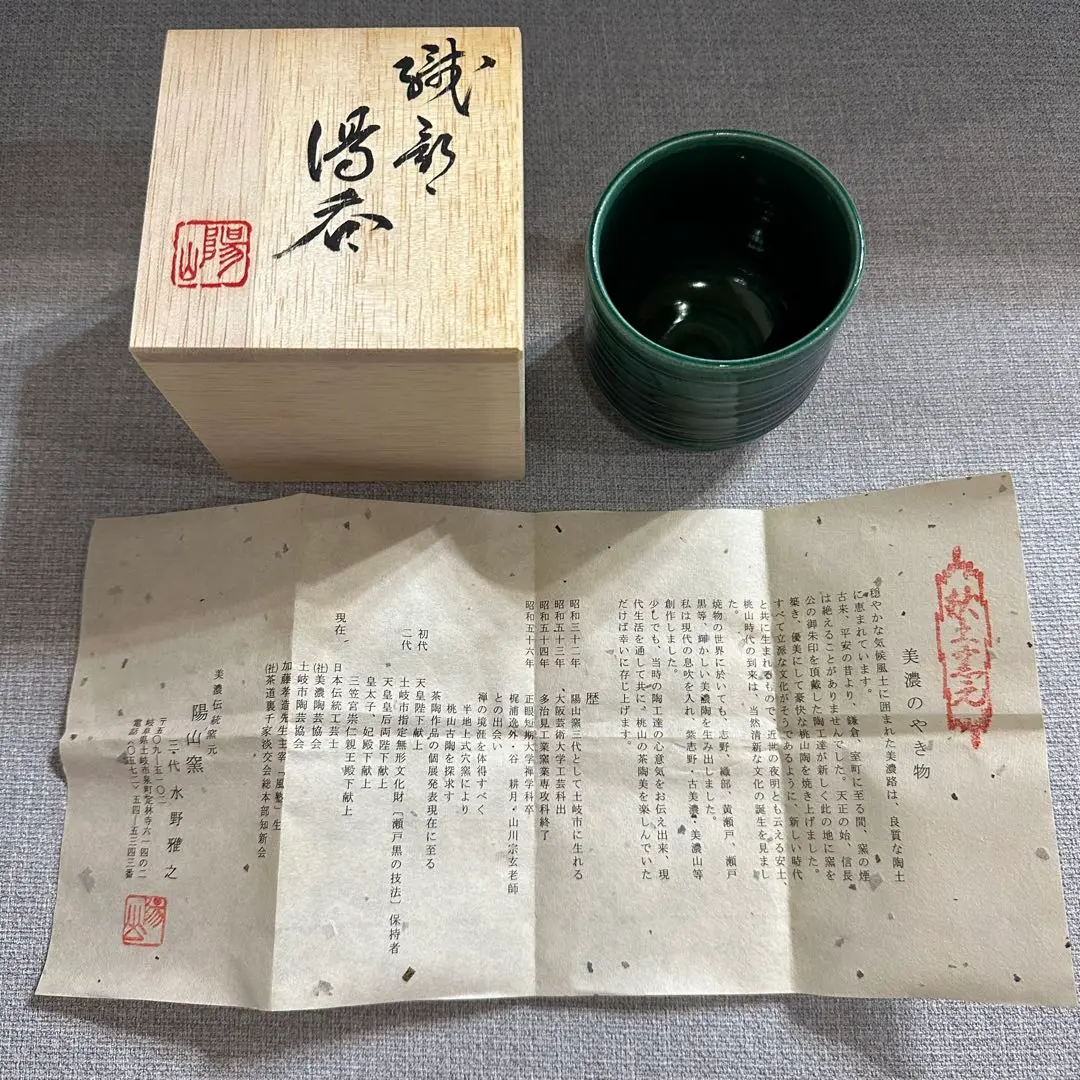 織部
湯呑
陽山
美濃のやき物
穏やかな気候風土に囲まれた美濃路は、良質な陶土
に恵まれています。
古来、平安の昔より、鎌倉、室町に至る間、窯の煙
は絶えることがありませんでした。天正の始、信長
公の御朱印を頂戴した陶工達が新しく此の地に窯を
築き、優美にして豪快な桃山陶を焼き上げました。
すべて立派な文化がそうであるように、新しい時代
と共に生まれるもので、近世の夜明とも云える安土、
桃山時代の到来は、当然清新な文化の誕生を見まし
た。
焼物の世界に於いても、志野、織部、黄瀬戸、瀬戸
黒等、輝かしい美濃陶を生み出しました。
私は現代の息吹を入れ、紫志野・古美濃・美濃山等
創作しました。
少しでも、当時の陶工達の心意気をお伝え出来、現
代生活を通して共に、桃山の茶陶美を楽しんでいた
だけば幸いに存じ上げます。
歴
昭和三十二年 陽山窯三代として土岐市に生れる
昭和五十三年 大阪芸術大学工芸科出
昭和五十四年 多治見工業窯業専攻科終了
昭和五十六年 正眼短期大学禅学科卒
梶浦逸外・谷 耕月・山川宗玄老師
との出会い
禅の境涯を体得すべく
半地上式穴窯により
桃山古陶を探求す
茶陶作品の個展発表現在に至る
初代 天皇陛下献上
二代 土岐市指定無形文化財「瀬戸黒の技法」保持者
天皇皇后両陛下献上
皇太子、妃殿下献上
三笠宮崇仁親王殿下献上
現在 日本伝統工芸士
(社)美濃陶芸協会
土岐市陶芸協会
加藤孝造先生主宰「風塾」生
(社)茶道裏千家淡交会総本部知新会
美濃伝統窯元
陽山窯
三代 水野雅之
〒五〇九―五一〇二
岐阜県土岐市泉町定林寺六一四の二
電話〇五七二)五四―五三四三番
陽山